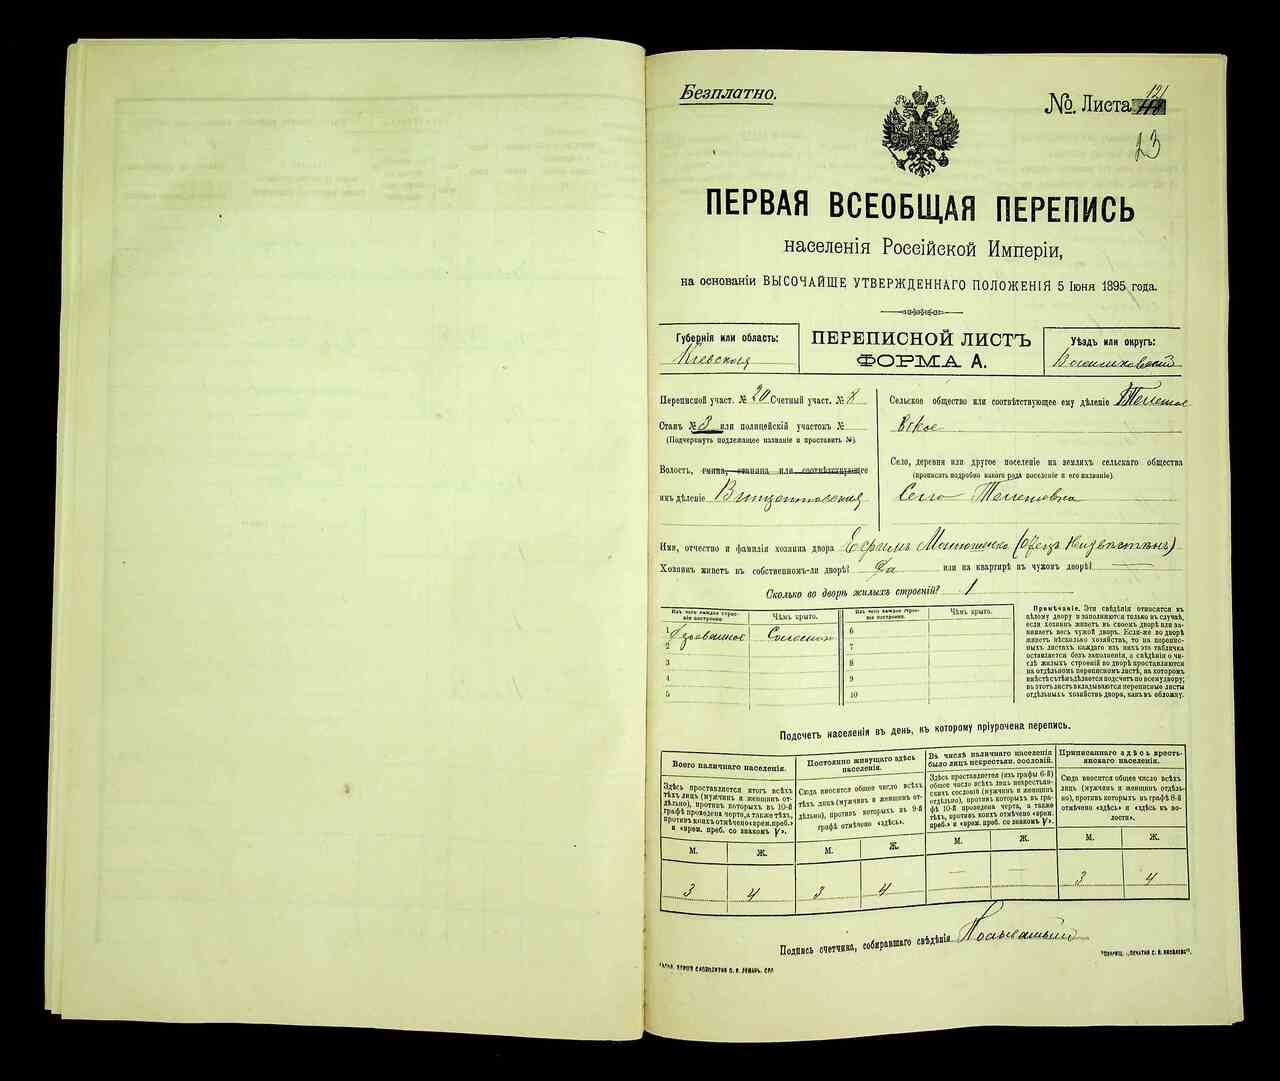 Безплатно.
№ Листа 121
23
ПЕРВАЯ ВСЕОБЩАЯ ПЕРЕПИСЬ
населенія Россійской Имперіи,
на основаніи ВЫСОЧАЙШЕ УТВЕРЖДЕННАГО ПОЛОЖЕНІЯ 5 Іюня 1895 года.
Губернія или область:
Кіевская
ПЕРЕПИСНОЙ ЛИСТЪ
ФОРМА А.
Уѣздъ или округъ:
Васильковскій
Переписной участ. № 20 Счетный участ. № 8
Станъ № 3 или полицейскій участокъ №
(Подчеркнуть подлежащее названіе и проставить №).
Волость, гмина, станица или соотвѣтствующее
имъ дѣленіе Винцентовская
Сельское общество или соотвѣтствующее ему дѣленіе Телешов
ское
Село, деревня или другое поселеніе на земляхъ сельскаго общества
(прописать подробно какого рода поселеніе и его названіе).
Село Телешовка
Имя, отчество и фамилія хозяина двора Ефримъ (Неизвѣстенъ)
Хозяинъ живетъ въ собственномъ-ли дворѣ? Да или на квартирѣ въ чужомъ дворѣ? —
Сколько во дворѣ жилыхъ строеній? 1
Изъ чего каждое строе-
ніе построено.
Чѣмъ крыто.
Изъ чего каждое строе-
ніе построено.
Чѣмъ крыто.
1 Соломой 6
2 7
3 8
4 9
5 10
Примѣчаніе. Эти свѣдѣнія относятся къ
цѣлому двору и заполняются только въ случаѣ,
если хозяинъ живетъ въ своемъ дворѣ или за-
нимаетъ весь чужой дворъ. Если-же во дворѣ
живетъ нѣсколько хозяйствъ, то на перепис-
ныхъ листахъ каждаго изъ нихъ эта табличка
оставляется безъ заполненія, а свѣдѣнія о чи-
слѣ жилыхъ строеній во дворѣ проставляются
на отдѣльномъ переписномъ листѣ, на которомъ
вмѣстѣ съ тѣмъ дѣлается подсчетъ по всему двору;
въ этотъ листъ вкладываются переписные листы
отдѣльныхъ хозяйствъ двора, какъ въ обложку.
Подсчетъ населенія въ день, къ которому пріурочена перепись.
Всего наличнаго населенія.
Здѣсь проставляется итогъ всѣхъ
тѣхъ лицъ (мужчинъ и женщинъ от-
дѣльно), противъ которыхъ въ 10-й
графѣ проведена черта, а также тѣхъ,
противъ коихъ отмѣчено «врем. преб.»
и «врем. преб. со знакомъ V».
М. Ж.
3 4
Постоянно живущаго здѣсь
населенія.
Сюда вносится общее число всѣхъ
тѣхъ лицъ (мужчинъ и женщинъ от-
дѣльно), противъ которыхъ въ 9-й
графѣ отмѣчено «здѣсь».
М. Ж.
3 4
Въ числѣ наличнаго населенія
было лицъ некрестьян. сословій.
Здѣсь проставляется (изъ графы 6-й)
общее число всѣхъ лицъ некрестьян-
скихъ сословій (мужчинъ и женщинъ
отдѣльно), противъ которыхъ въ гра-
фѣ 10-й проведена черта, а также
тѣхъ, противъ коихъ отмѣчено «врем.
преб.» и «врем. преб. со знакомъ V».
М. Ж.
— —
Приписаннаго здѣсь кресть-
янскаго населенія.
Сюда вносится общее число всѣхъ
лицъ (мужчинъ и женщинъ отдѣль-
но), противъ которыхъ въ графѣ 8-й
отмѣчено «здѣсь» и «здѣсь въ во-
лости».
М. Ж.
3 4
Подпись счетчика, собиравшаго свѣдѣнія